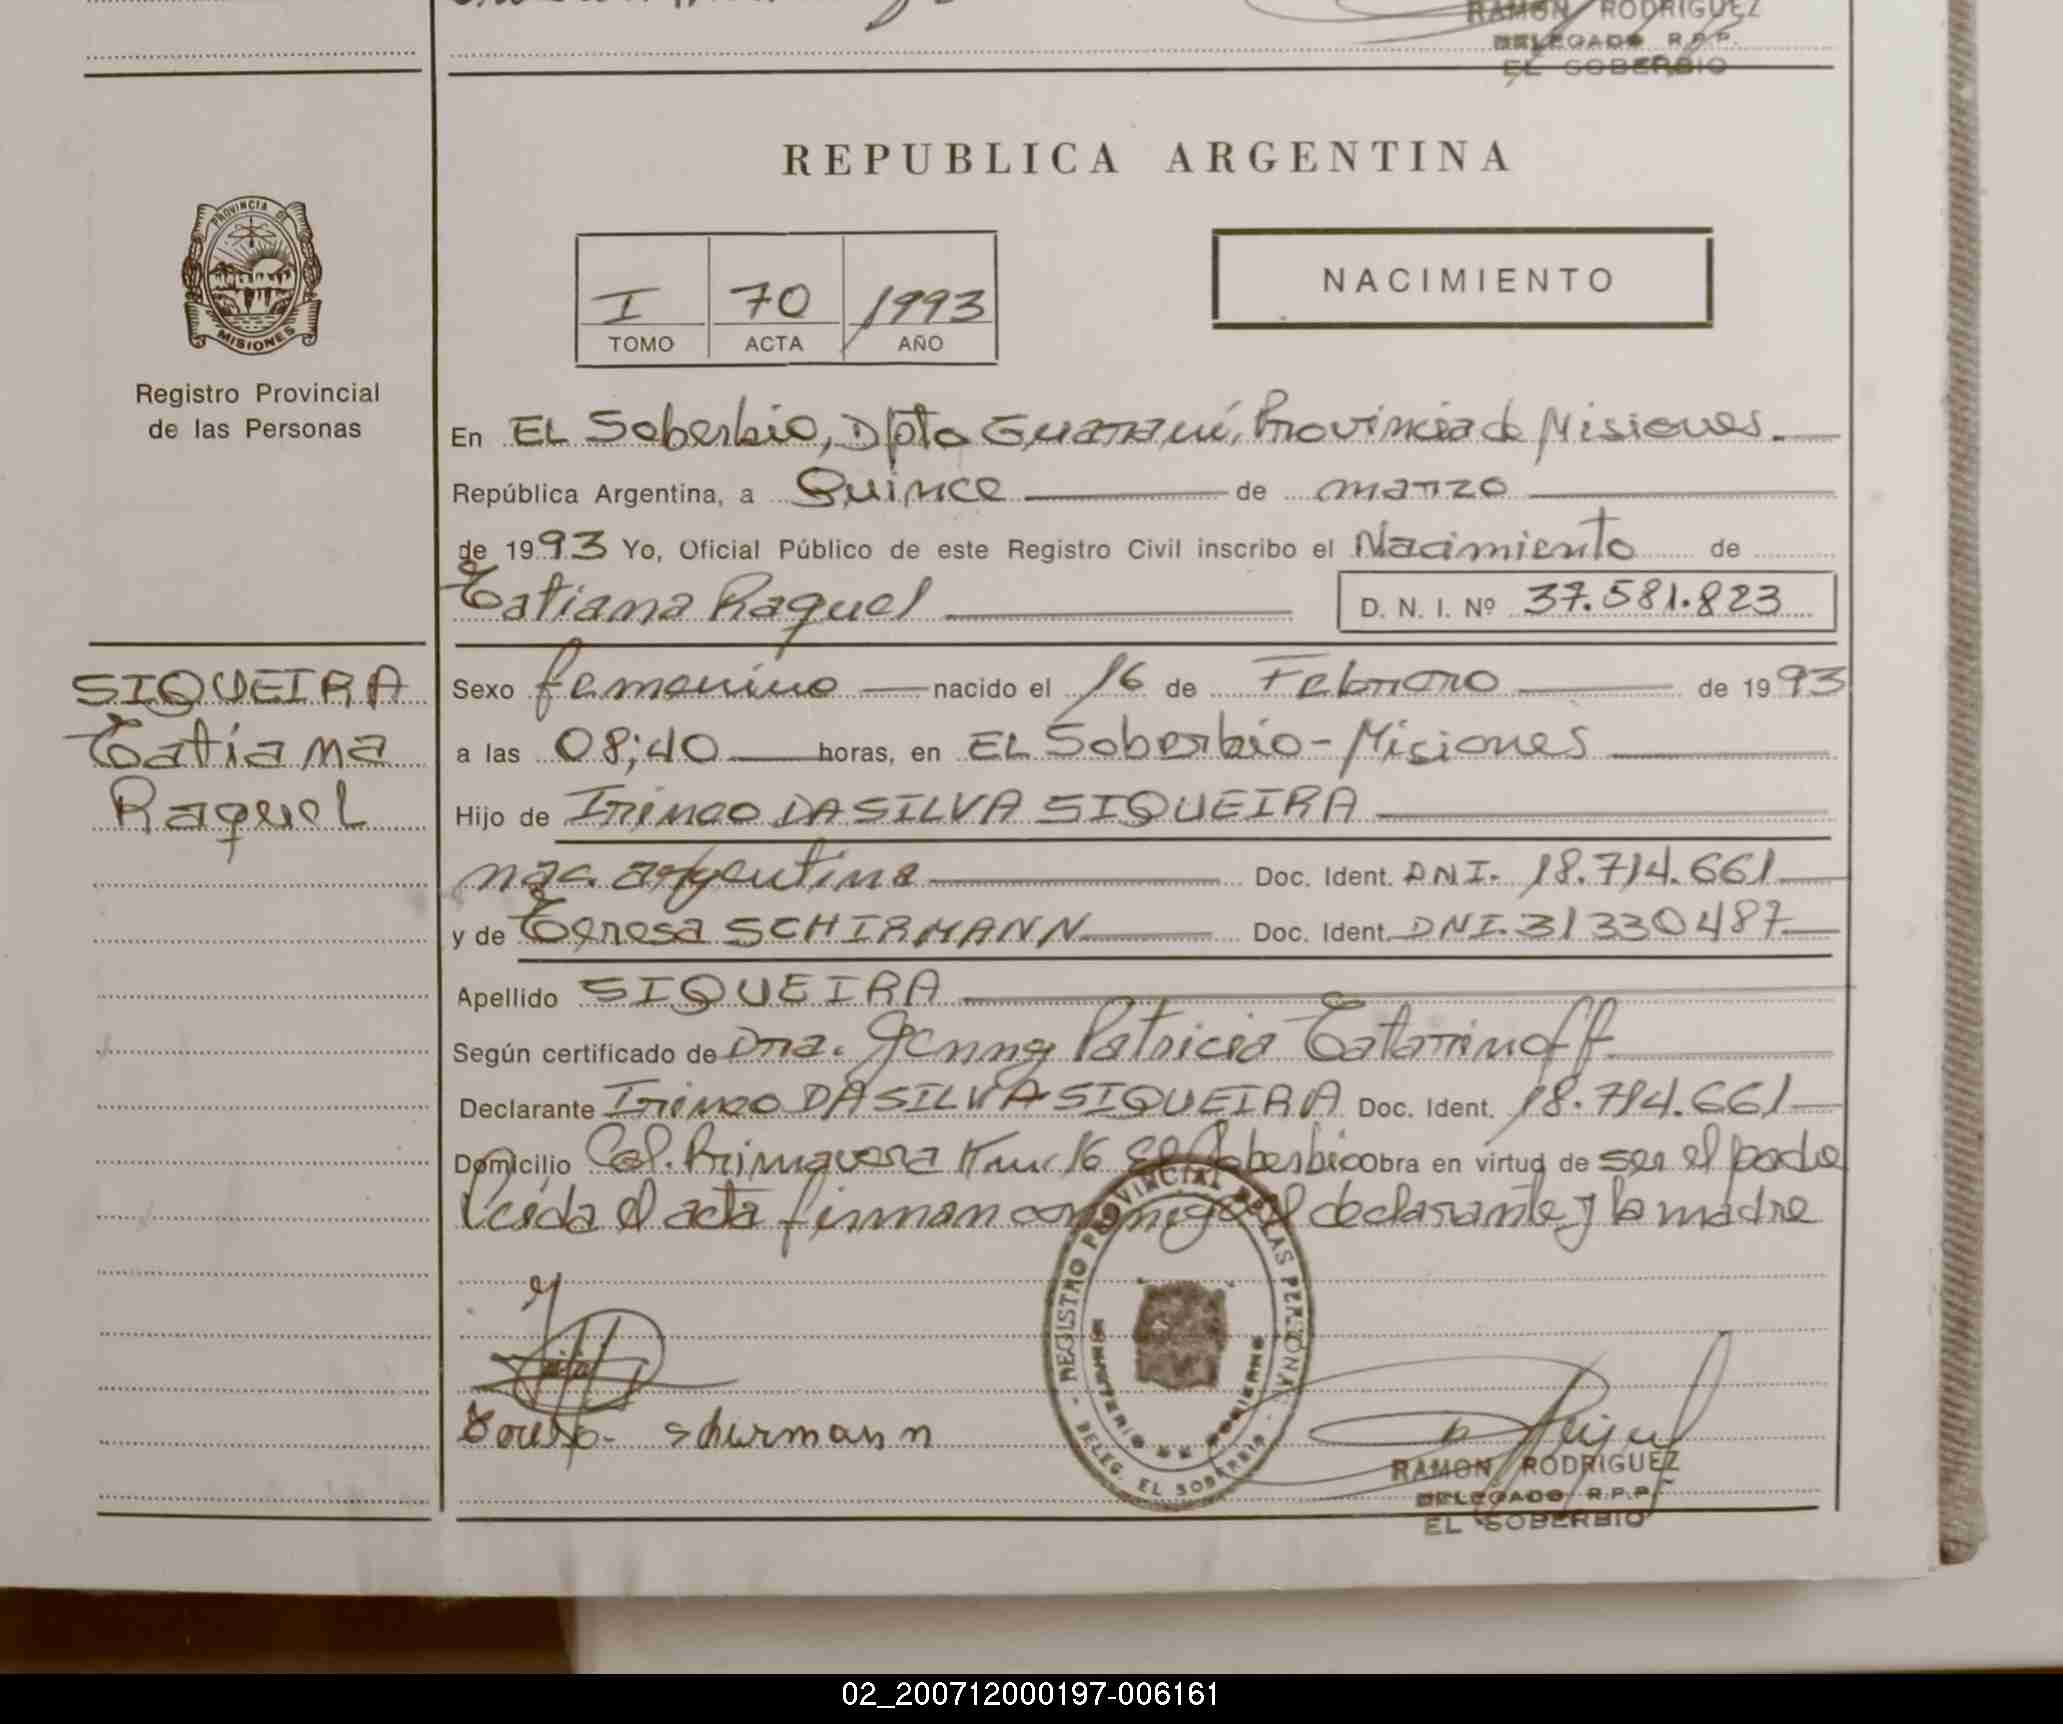 RAMON RODRIGUEZ
DELEGADO R.P.P.
EL SOBERBIO
REPUBLICA ARGENTINA
PROVINCIA DE
MISIONES
Registro Provincial
de las Personas
I 70 1993
TOMO ACTA AÑO
NACIMIENTO
En EL Soberbio, Dpto Guaraní, Provincia de Misiones.
República Argentina, a Quince de marzo
de 1993 Yo, Oficial Público de este Registro Civil inscribo el Nacimiento de
Tatiana Raquel
D. N. I. Nº 37.581.823
SIQUEIRA
Tatiana
Raquel
Sexo femenino nacido el 16 de Febrero de 1993
a las 08;40 horas, en EL Soberbio - Misiones
Hijo de Irineo DA SILVA SIQUEIRA
nac. argentina Doc. Ident. DNI. 18.714.661
y de Teresa SCHIRMANN Doc. Ident. DNI. 31330487
Apellido SIQUEIRA
Según certificado de Dra. Jenny Patricia Tatarinoff
Declarante Irineo DA SILVA SIQUEIRA Doc. Ident. 18.714.661
Domicilio Col. Primavera Km. 16 El Soberbio Obra en virtud de ser el padre
Leída el acta firman conmigo el declarante y la madre
REGISTRO PROVINCIAL DE LAS PERSONAS
MINISTERIO GOBIERNO
DELEG. EL SOBERBIO
schirmann
RAMON RODRIGUEZ
DELEGADO R.P.P.
EL SOBERBIO
02_200712000197-006161